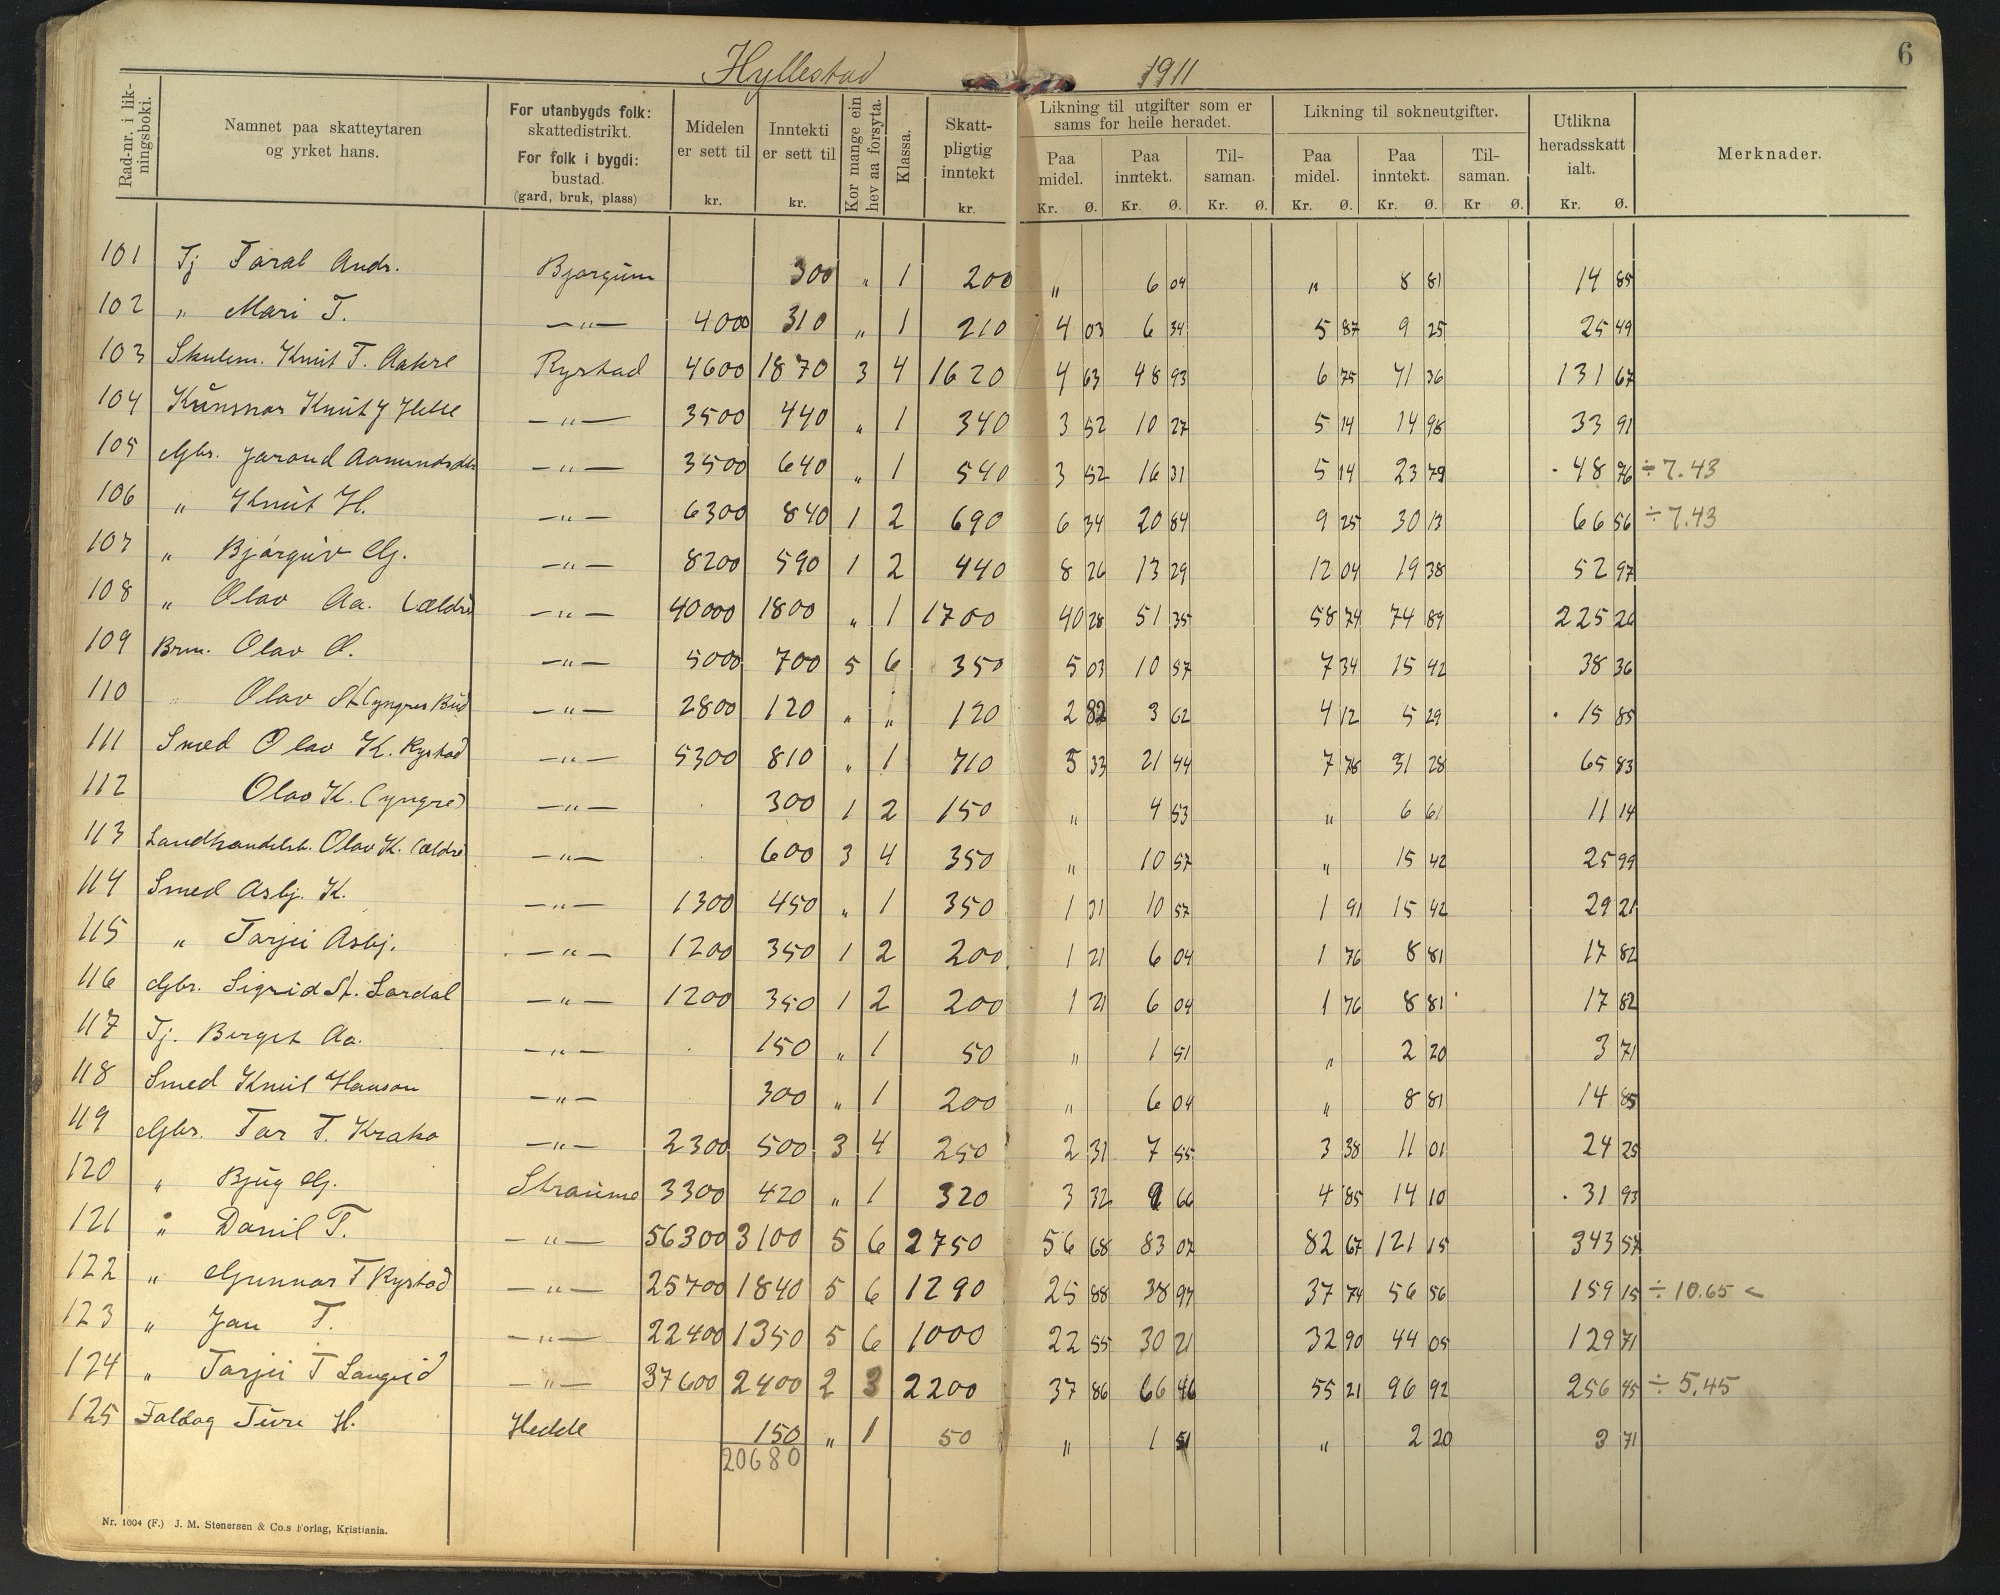 Hyllestad 1911
6
Rad-nr. i lik-ningsboki. | Namnet paa skatteytaren og yrket hans. | For utanbygds folk: skattedistrikt. For folk i bygdi: bustad. (gard, bruk, plass) | Midelen er sett til kr. | Inntekti er sett til kr. | Kor mange ein hev aa forsyta. | Klassa. | Skatt-pligtig inntekt kr. | Likning til utgifter som er sams for heile heradet. Paa midel. Kr. Ø. | Paa inntekt. Kr. Ø. | Til-saman. Kr. Ø. | Likning til sokneutgifter. Paa midel. Kr. Ø. | Paa inntekt. Kr. Ø. | Til-saman. Kr Ø. | Utlikna heradsskatt ialt. Kr. Ø. | Merknader.
101 Tj Taral Andr. Bjørgum 300 " 1 200 " 6 04 " 8 81 14 85
102 " Mari T. —"— 4000 310 " 1 210 4 03 6 34 5 87 9 25 25 49
103 Skulem. Knut T. Aakre Rystad 4600 1870 3 4 1620 4 63 48 93 6 75 71 36 131 67
104 Knut J —"— 3500 440 " 1 340 3 52 10 27 5 14 14 98 33 91
105 Gbr. Jorond Aamundsdtr —"— 3500 640 " 1 540 3 52 16 31 5 14 23 79 · 48 76 ÷ 7.43
106 " Knut H. —"— 6300 840 1 2 690 6 34 20 84 9 25 30 13 66 56 ÷ 7.43
107 " Bjørguv G. —"— 8200 590 1 2 440 8 26 13 29 12 04 19 38 52 97
108 " Olav Aa. (ældre —"— 40000 1800 " 1 1700 40 28 51 35 58 74 74 89 225 26
109 Brm. Olav O. —"— 5000 700 5 6 350 5 03 10 57 7 34 15 42 38 36
110 " Olav St (yngres —"— 2800 120 " " 120 2 82 3 62 4 12 5 29 · 15 85
111 Smed Olav K. Rystad —"— 5300 810 " 1 710 5 33 21 44 7 78 31 28 65 83
112 Olav K. (yngre) —"— 300 1 2 150 " 4 53 " 6 61 11 14
113 Landhandelsb. Olav K. (ældre) —"— 600 3 4 350 " 10 57 " 15 42 25 99
114 Smed Asbj. K. —"— 1300 450 " 1 350 1 31 10 57 1 91 15 42 29 21
115 " Tarjei Asbj. —"— 1200 350 1 2 200 1 21 6 04 1 76 8 81 17 82
116 Gbr. Sigrid St. Lardal —"— 1200 350 1 2 200 1 21 6 04 1 76 8 81 17 82
117 Tj. Berget Aa. —"— 150 " 1 50 " 1 51 " 2 20 3 71
118 Smed Knut Hanson —"— 300 " 1 200 " 6 04 " 8 81 14 85
119 Gbr. Tor T. Krako —"— 2300 500 3 4 250 2 31 7 55 3 38 11 01 24 25
120 " Bjug G. Straume 3300 420 " 1 320 3 32 9 66 4 85 14 10 · 31 93
121 " Danil T. —"— 56300 3100 5 6 2750 56 68 83 07 82 67 121 15 343 57
122 " Gunnar T Rystad —"— 25700 1840 5 6 1290 25 88 38 97 37 74 56 56 159 15 ÷ 10.65 <
123 " Jon T. —"— 22400 1350 5 6 1000 22 55 30 21 32 90 44 05 129 71
124 " Tarjei T Langeid —"— 37600 2400 2 3 2200 37 86 66 46 55 21 96 92 256 45 ÷ 5.45
125 Ture H. Hedde 150 " 1 50 " 1 51 " 2 20 3 71
20680
Nr. 1604 (F.) J. M. Stenersen & Co.s Forlag, Kristiania.